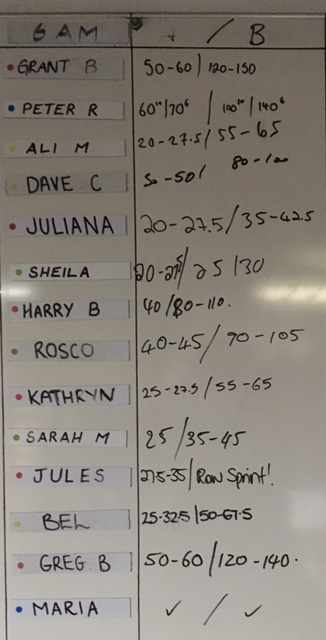 6 AM / B
GRANT B 50-60 / 120-150
PETER R 60"/70⁶ / 100¹⁰ / 140⁶
ALI M 20-27.5 / 55-65
DAVE C -50 / 80-
JULIANA 20-27.5 / 35-42.5
SHEILA / 25 / 30
HARRY B 40 / 80-110.
ROSCO 40-45 / 90-105
KATHRYN 25-27.5 / 55-65
SARAH M 25 / 35-45
JULES 27.5-35 / Row Sprint!
BEL 25-32.5 / 50-67.5
GREG B 50-60 / 120-140.
MARIA ✓ / ✓